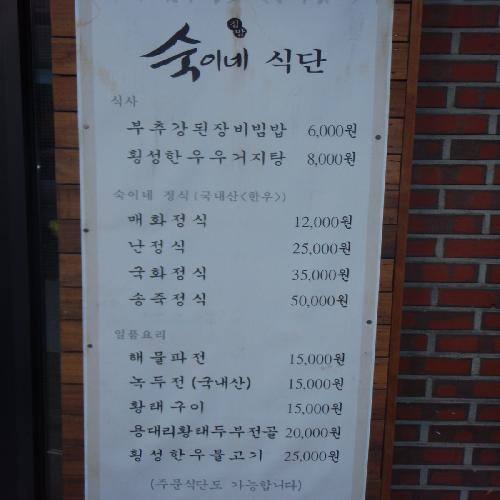 집밥
숙이네 식단
식사
부추강된장비빔밥 6,000원
횡성한우우거지탕 8,000원
숙이네 정식(국내산<한우>)
매화정식 12,000원
난정식 25,000원
국화정식 35,000원
송죽정식 50,000원
일품요리
해물파전 15,000원
녹두전(국내산) 15,000원
황태구이 15,000원
용대리황태두부전골 20,000원
횡성한우불고기 25,000원
(주문식단도 가능합니다)